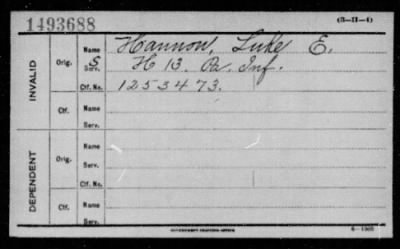 1493688
(3-II-4)
INVALID
Orig.
Name Hannon, Luke E.
Serv. S H 13. Pa. Inf.
Ctf. No. 1253473.
Ctf.
Name
Serv.
DEPENDENT
Orig.
Name
Serv.
Ctf. No.
Ctf.
Name
Serv.
GOVERNMENT PRINTING OFFICE